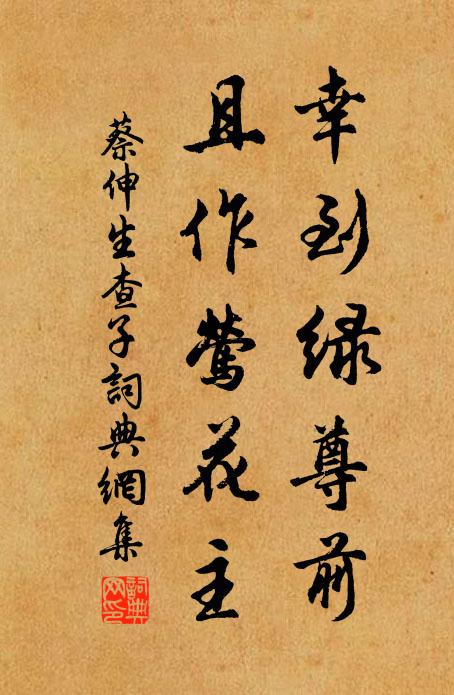 幸到緑尊前
且作鶯花主
蔡伸生查子詞典網集
詞典網印